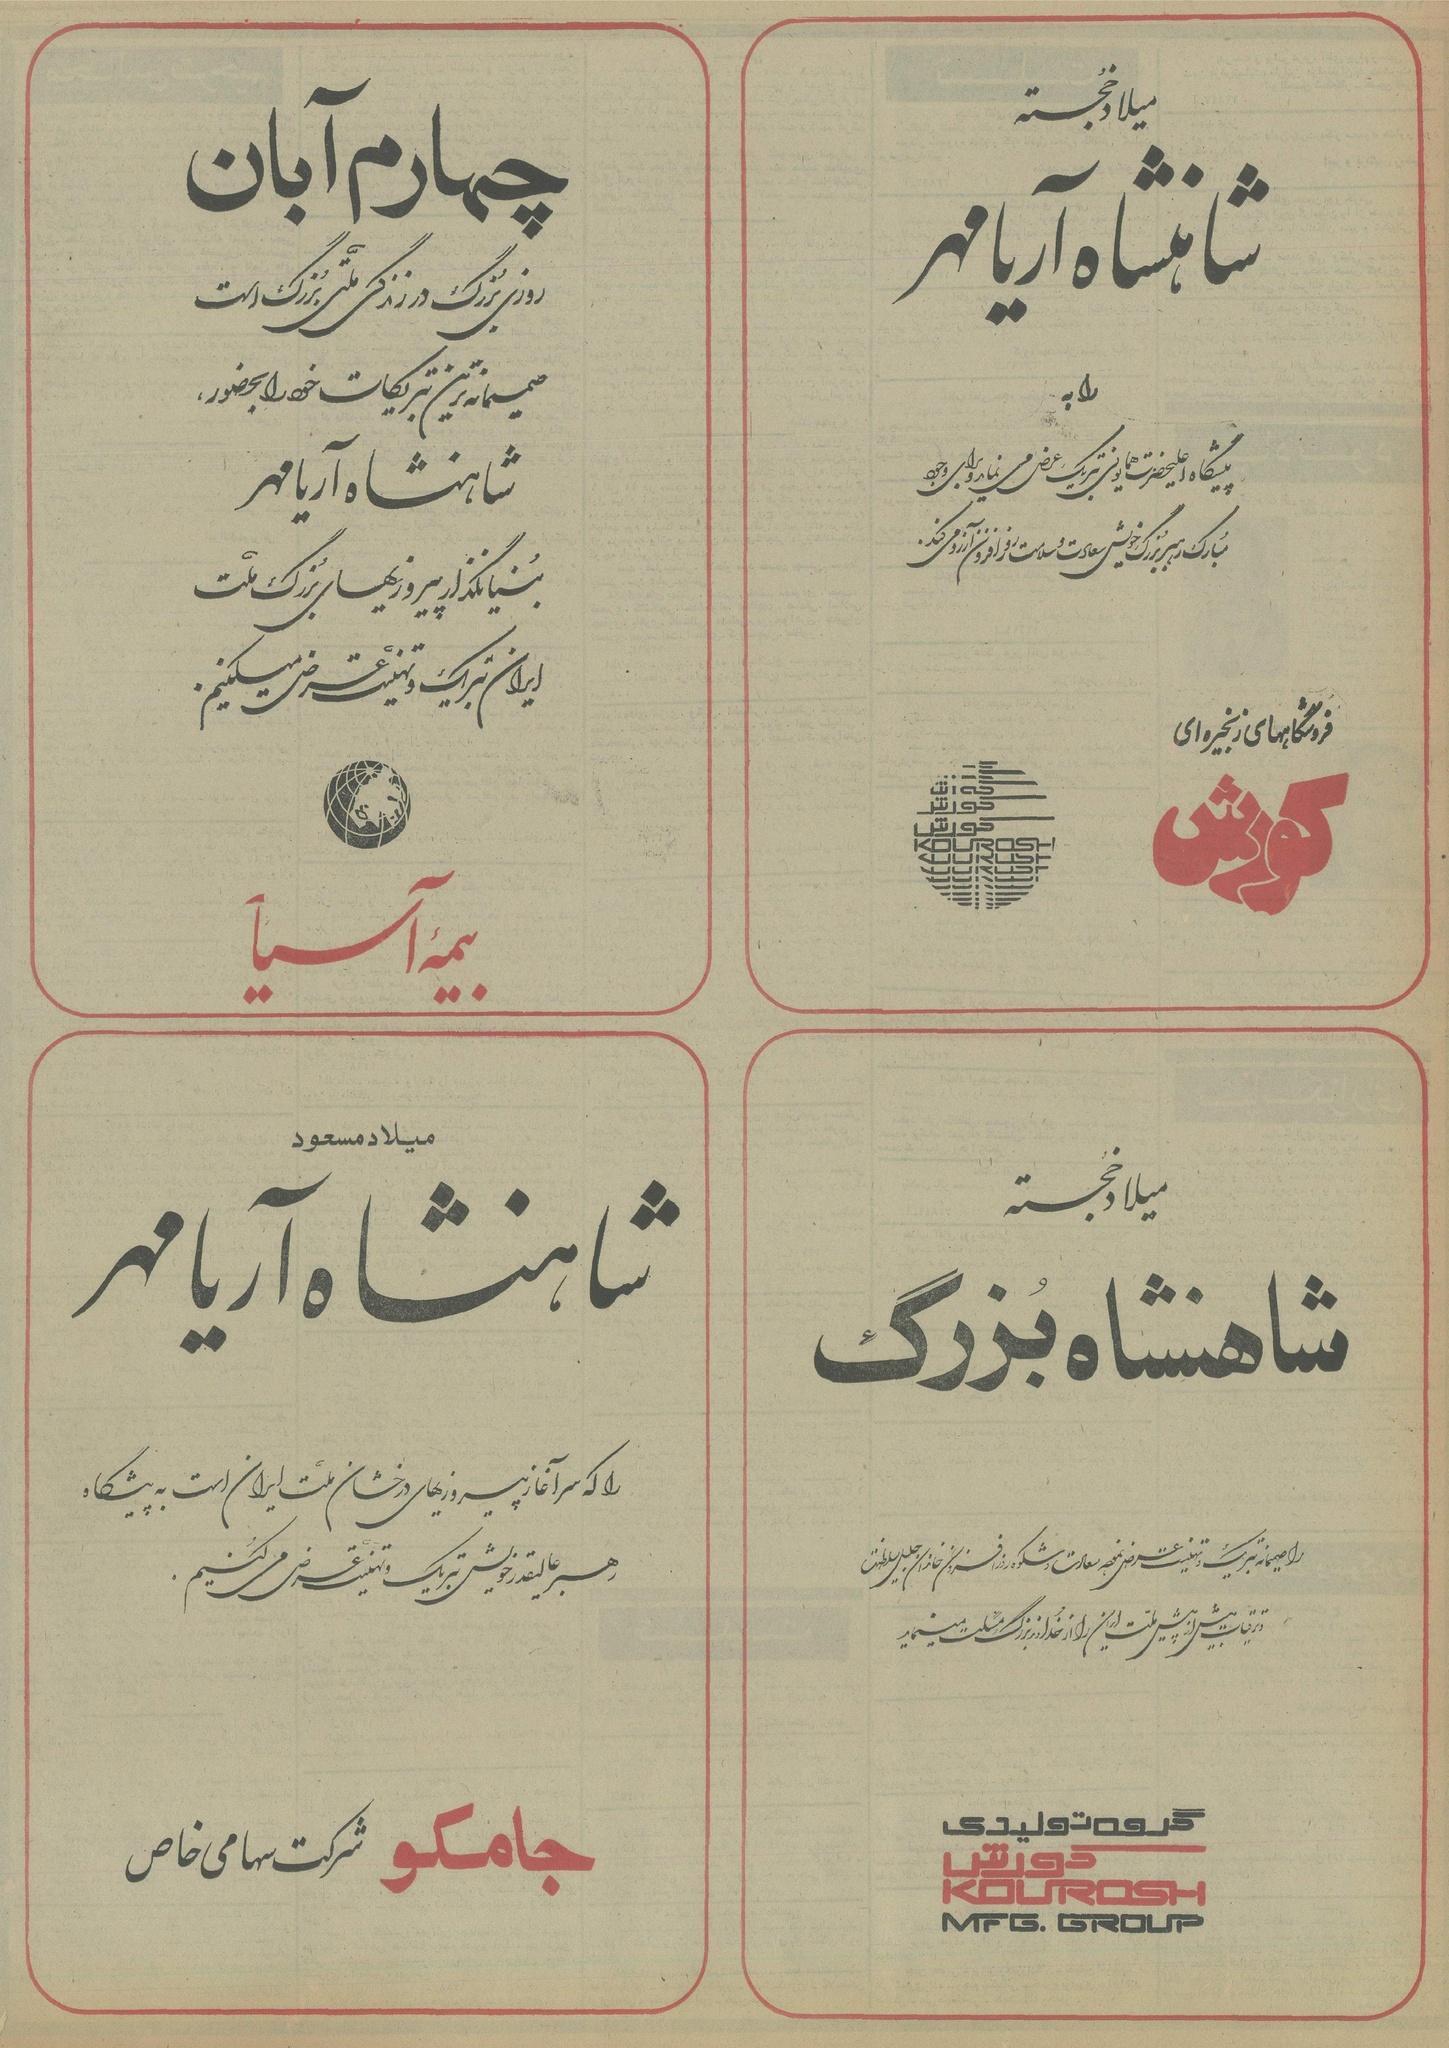 میلاد خجسته
شاهنشاه آریامهر
را به
پیشگاه اعلیحضرت همایونی تبریک عرض می نماید و برای وجود
مبارک رهبر بزرگ خویش سعادت و سلامت روزافزون آرزو می کند.
فروشگاههای زنجیره ای
کورش
KOUROSH
چهارم آبان
روزی بزرگ در زندگی ملتی بزرگ است
صمیمانه ترین تبریکات خود را بحضور،
شاهنشاه آریامهر
بنیانگذار پیروزیهای بزرگ ملت
ایران تبریک و تهنیت عرض میکنیم.
بیمهٔ آسیا
میلاد خجسته
شاهنشاه بزرگ
را صمیمانه تبریک و تهنیت عرض نموده سعادت و شکوه روزافزون خاندان جلیل سلطنت
و ترقیات بیش از پیش ملت ایران را از خداوند بزرگ مسئلت مینماید
گروه تولیدی
کورش
KOUROSH
MFG. GROUP
میلاد مسعود
شاهنشاه آریامهر
را که سرآغاز پیروزیهای درخشان ملت ایران است به پیشگاه
رهبر عالیقدر خویش تبریک و تهنیت عرض می کنیم.
جامکو
شرکت سهامی خاص